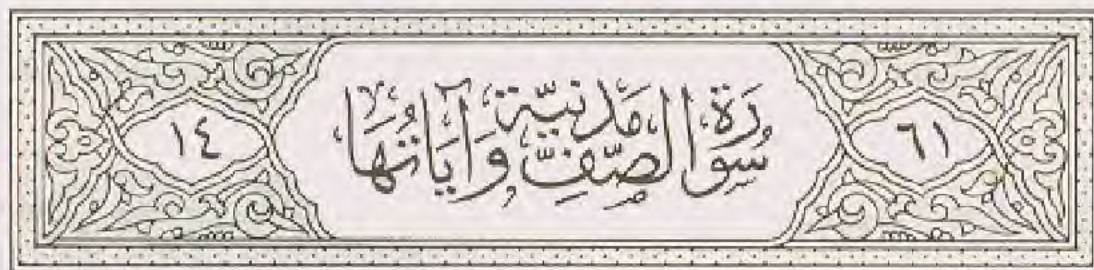 ٦١
سُورَةُ الصَّفِّ مَدَنِيَّة وَآيَاتُهَا
١٤